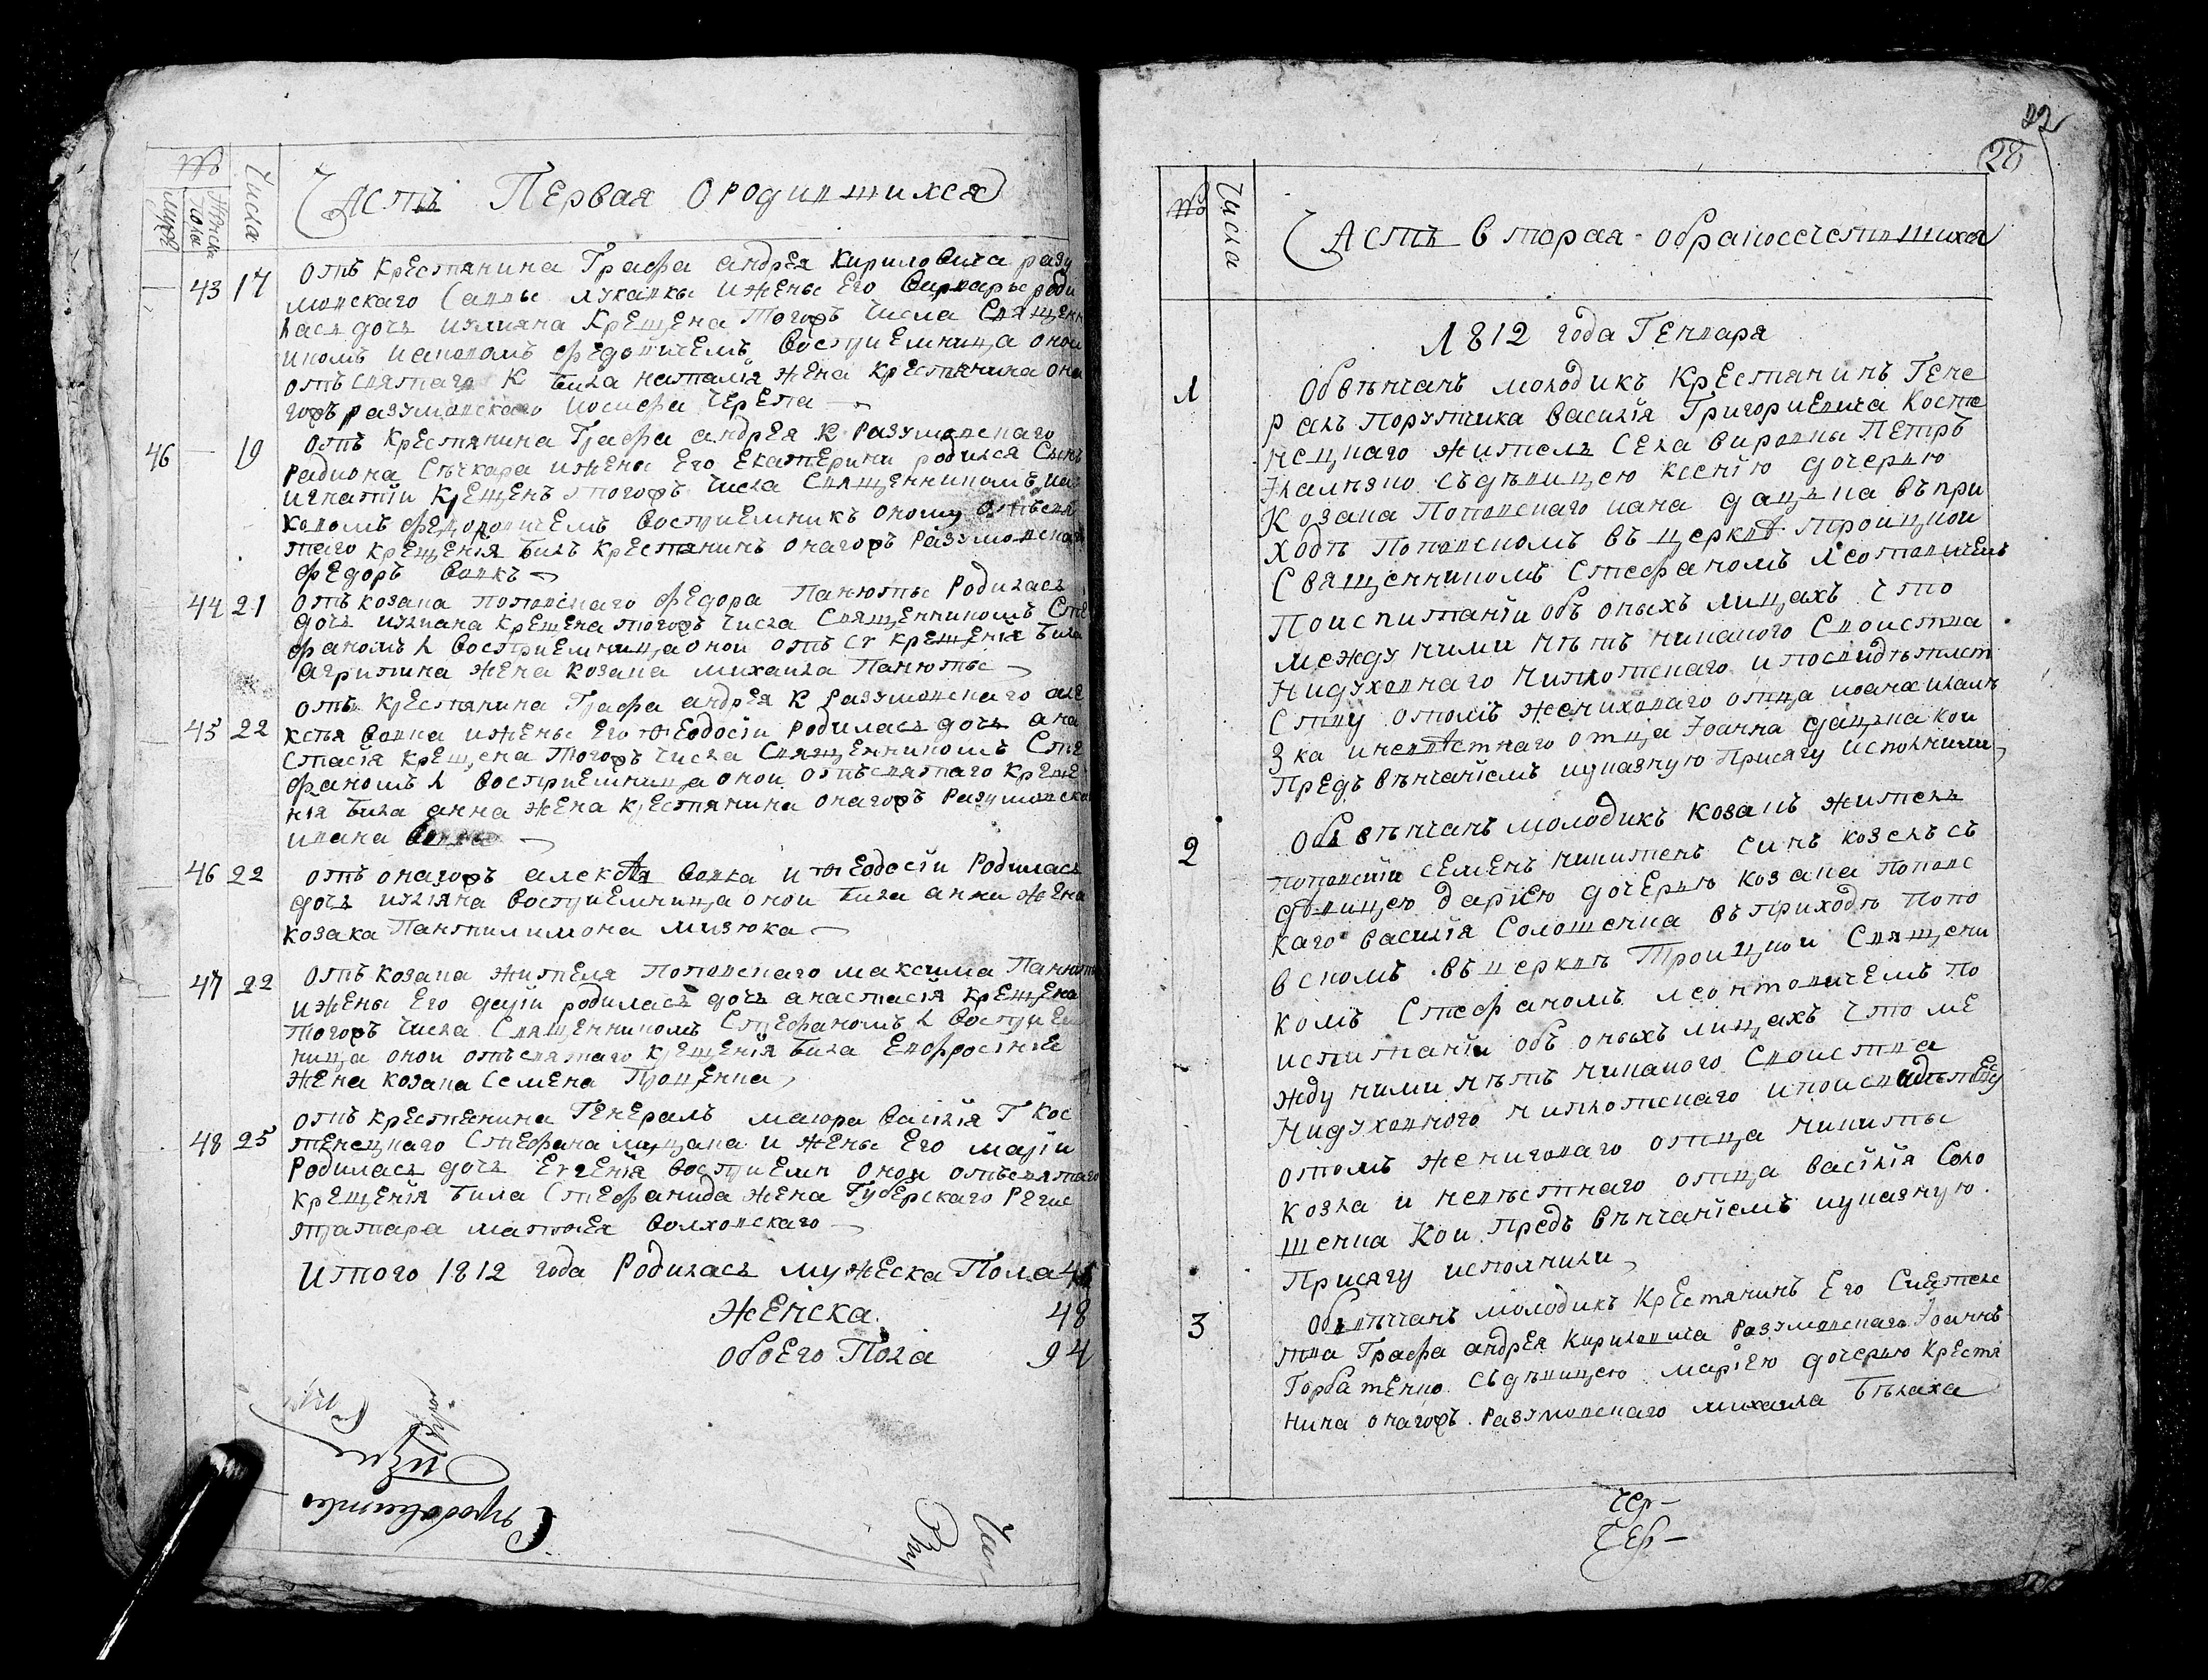 №
Мужс
Женск пола
Числа
Часть Первая о родившихся
43 17 отъ крестянина Графа андрея Кириловича разу
мовскаго Саввы лукавки и жены Его Варвары роди
лась дочь иулияна крещена тогожъ числа Священ
икомъ иаковомъ федовичемъ Восприемница оной
отъ святаго К била наталія жена крестянина она
гожъ разумовскаго иосифа Черепа
46 19 отъ крестянина Графа андрея К Разумовскаго
Радиона Сѣчкара и жены Его Екатерини родился Сынъ
игнатіи крещенъ тогожъ числа Священникомъ иа
ковомъ федоровичемъ восприемникъ оному отъ свя
таго крещенія билъ крестянинъ онагожъ Разумовскаго
федоръ вовкъ
44 21 отъ козака поповскаго федора Панюты Родилась
дочь иулиана крещена тогожъ числа Священникомъ Сте
фаномъ Л восприемница оной отъ Ст крещенія била
агрипина жена козака михаила Панюты
45 22 отъ крестянина Графа андрея К Разумовскаго але
ксѣя вовка и жены Его Феодосіи Родилась дочь ана
стасія крещена тогожъ числа Священникомъ Сте
фаномъ Л восприемница оной отъ святаго креще
нія била анна жена крестянина онагожъ Разумовска
ивана
46 22 отъ онагожъ алексѣя вовка и Феодосіи Родилась
дочь иулияна восприемница оной била анна жена
козака Пантилимона мизюка
47 22 отъ козака жителя поповскаго максима Панюты
и жены Его дарии родилась дочь анастасія крещена
тогожъ числа Священникомъ Стефаномъ Л восприем
ница оной отъ святаго крещенія била Евфросінія
жена козака Семена Проценка
48 25 отъ крестенина Генералъ маюра василія Г Кос
тенецкаго Стефана лицмана и жены Его маріи
Родилась дочь Евгенія восприемн оной отъ святаго
крещенія била Стефанида жена Губерскаго Регис
тратара матфея волховскаго
Итого 1812 года Родилась мужеска Пола 46
женска 48
обоего Пола 94
22
28
№
Числа
Часть вторая о бракосочетавшихся
1812 года Генваря
1 Обвѣнчанъ молодикъ крестянинъ Гене
ралъ Порутчика василія Григориевича Косте
нецкаго житель села вировки Петръ
съдѣвицею ксенію дочерью
козака поповскаго иана даценка въ при
ходѣ поповскомъ въ церквѣ троицкой
Священникомъ Стефаномъ леонтовичемъ
По испитаніи объ оныхъ лицахъ что
между ними нѣтъ никакого свойства
нидуховнаго ниплотскаго и посвидѣтелст
ству отомъ жениховаго отца иоана
и невѣстнаго отца Iоанна даценка кои
предъ вѣнчаніемъ указную присягу исполнили
2 Обвѣнчанъ молодикъ козакъ житель
поповскій семенъ никитенъ синъ козелъ съ
дѣвицею дарією дочерью козака поповс
каго василія солошенка въ приходѣ попо
вскомъ въ церквѣ Троицкой Священи
комъ Стефаномъ леонтовичемъ по
испитаніи объ оныхъ лицахъ что ме
жду ними нѣтъ никакого свойства
нидуховного ниплотскаго и посвидѣтелсву
отомъ жениховаго отца никиты
козла и невѣстнаго отца василія соло
шенка кои предъ вѣнчаніемъ указную
присягу исполнили
3 Обвѣнчанъ молодикъ крестянинъ Его Сиятель
ства Графа андрея кириловича Разумовскаго Iоаннъ
Горбатенко съдѣвицею марією дочерью крестя
нина онагожъ Разумовскаго михаила бѣлаха